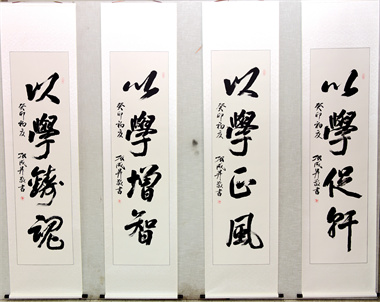 以學鑄魂
癸卯初夏
敬書
以學增智
癸卯初夏
敬書
以學正風
癸卯初夏
敬書
以學促幹
癸卯初夏
敬書